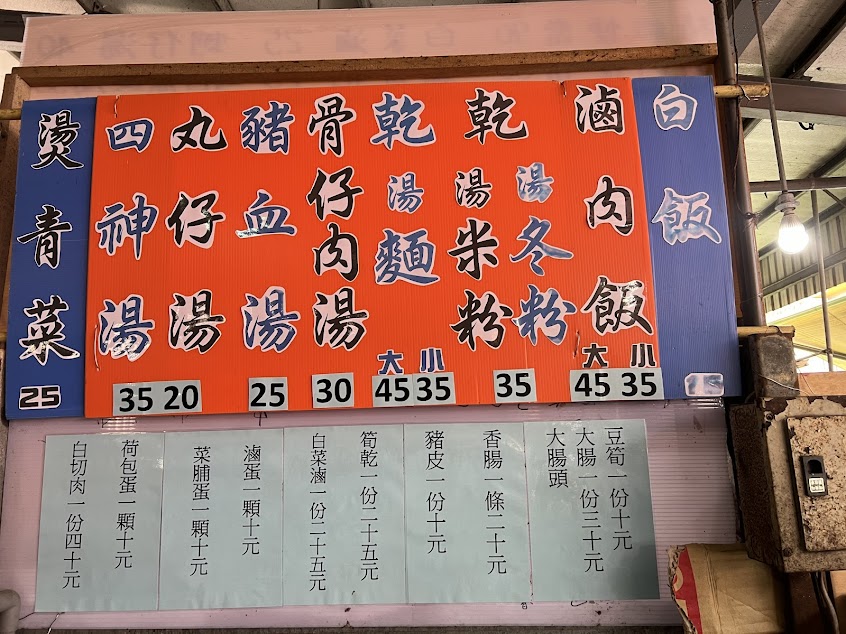 白飯 15
滷肉飯 大45 小35
乾 湯冬粉 湯米粉 35
乾湯麵 大45 小35
骨仔肉湯 30
豬血湯 25
丸仔湯 20
四神湯 35
燙青菜 25
豆筍一份十元
大腸一份三十元
大腸頭
香腸一條二十元
豬皮一份十元
筍乾一份二十五元
白菜滷一份二十五元
滷蛋一顆十元
菜脯蛋一顆十元
荷包蛋一顆十元
白切肉一份四十元